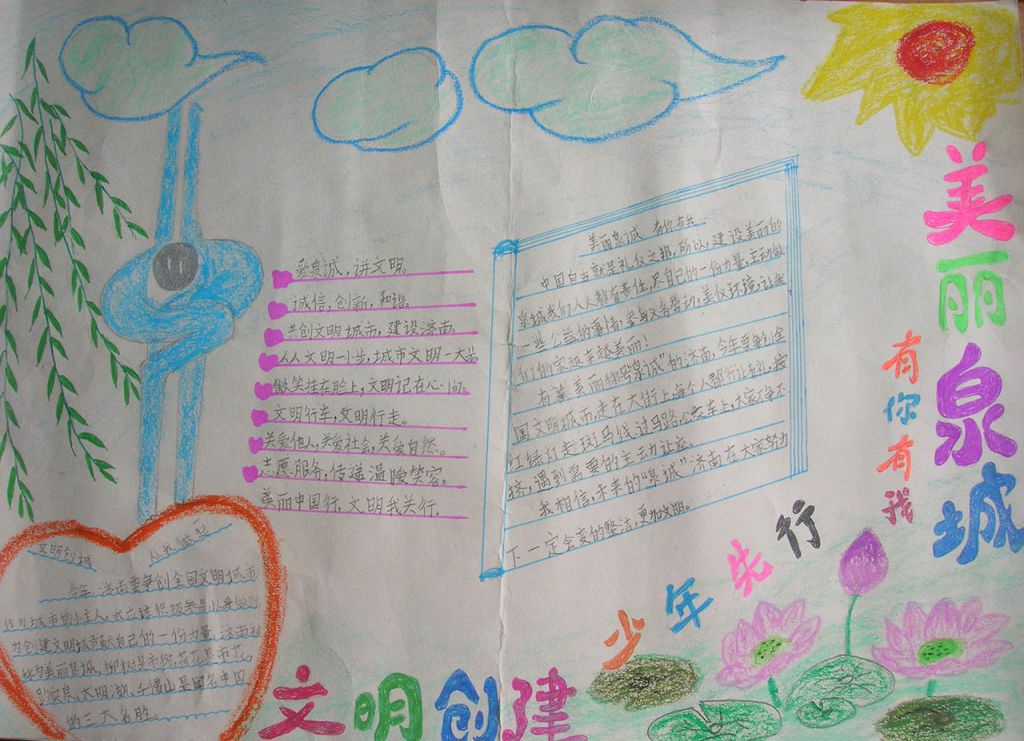 美丽泉城
有你有我
爱泉诚，讲文明。
诚信，创新，和谐。
共创文明城市，建设济南。
人人文明一小步，城市文明一大步
微笑挂在脸上，文明记在心间。
文明行车，文明行走。
关爱他人，关爱社会，关爱自然。
志愿服务，传递温暖笑容。
美丽中国行，文明我关行。
美丽泉诚 有你有我
中国自古就是礼仪之邦，所以，建设美丽的
泉城我们人人都有责任，尽自己的一份力量，主动做
一些公益的事情，参与义务劳动，美仪环境，让我
们的家越来越美丽！
有着美丽称号“泉诚”的济南，今年要争创全
国文明城市，走在大街上，每个人都行让有礼，按
红绿灯走斑马线，过马路，公交车上，大家不争不
挤，遇到需要的主动力让座。
我相信，未来的“泉城”济南在大家努力
下一定会变的整洁，更加文明。
文明创城 从我做起
今年，济南要争创全国文明城市
作为城市的小主人，我应该积极参与，从身做起
为创建文明城贡献自己的一份力量，济南被
称为美丽泉城，柳树是市树，荷花是市花，
趵突泉、大明湖、千佛山是闻名中国
的三大名胜。
少年先行
文明创建